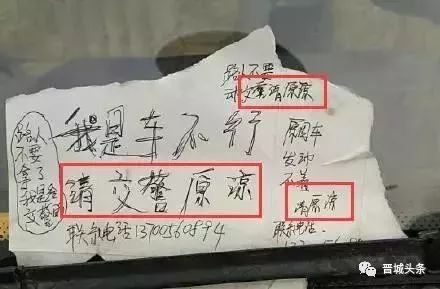 路人不要
动 交警请原谅
我是车不行
请交警原谅
联系电话13705605994
路人
不要了
拿了
我是
原因车
发动
不着
请原凉
联系电话
晋城头条